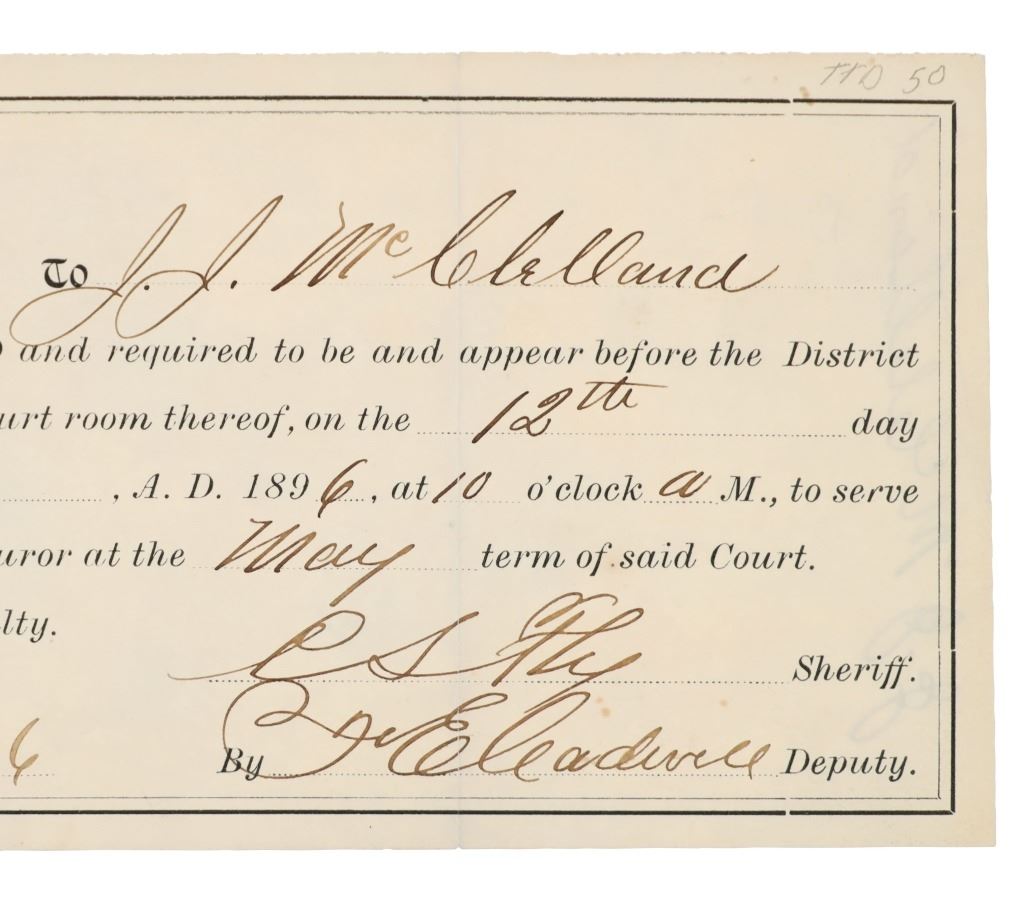 TTD 50
To J. J. McClelland
and required to be and appear before the District
urt room thereof, on the 12th day
, A. D. 1896, at 10 o'clock a M., to serve
uror at the May term of said Court.
lty.
C S Sheriff.
6 By Cadwell Deputy.